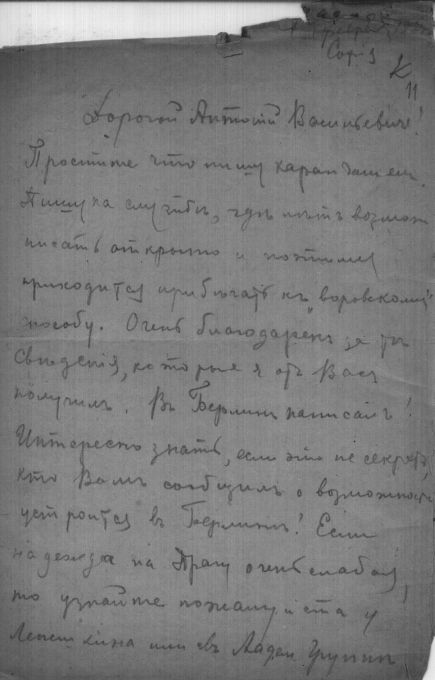 Дорогой Антоний Васильевич!
Простите что пишу карандашем.
Пишу на службѣ, гдѣ нѣтъ возмож.
писать открыто и поэтому
приходится прибѣгать къ "воровскому"
способу. Очень благодаренъ за тѣ
свѣдѣнiя, которые я отъ Васъ
получилъ. Въ Берлинъ написалъ!
Интересно знать, если это не секретъ,
кто Вамъ сообщилъ о возможности
устроится въ Берлинѣ! Если
надежда на Прагу очень слабая,
то узнайте пожалуйста у
или въ Акдем Группѣ